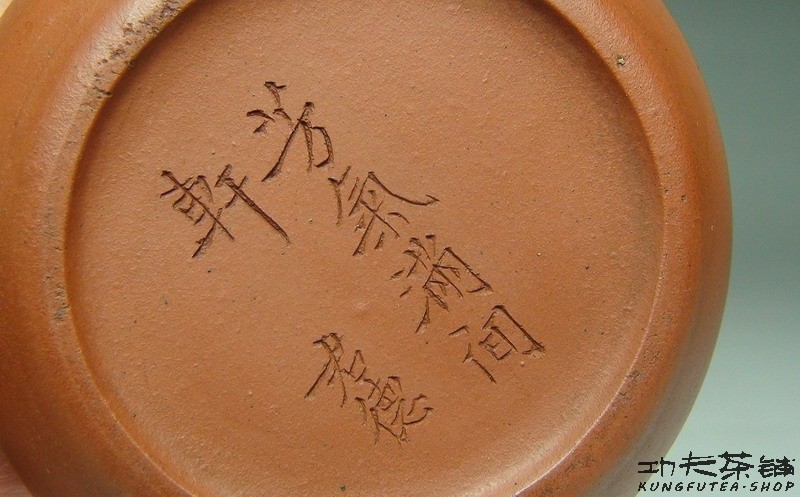 芳氣滿間
軒
君德
功夫茶舖
KUNGFUTEA·SHOP